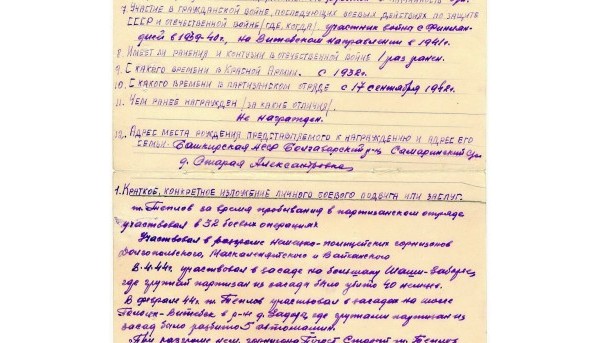 7. Участие в гражданской войне, последующих боевых действиях по защите
СССР и отечественной войне /где, когда/. участник войны с Финлян-
дией в 1939-40г., на Витебском направлении в 1941г.
8. Имеет ли ранения и контузии в отечественной войне 1 раз ранен.
9. С какого времени в Красной Армии. с 1932г.
10. С какого времени в партизанском отряде с 17 сентября 1942г.
11. Чем ранее награжден /за какие отличия/.
Не награжден.
12. Адрес места рождения представляемого к награждению и адрес его
семьи Башкирская АССР
д. Старая Александровка
1. Краткое, конкретное изложение личного боевого подвига или заслуг.
т. Теплов за время пребывания в партизанском отряде
участвовал в 32 боевых операциях
Участвовал в разгроме немецко-полицейских гарнизонов
В 4.44г. участвовал в засаде на большаку
где группой партизан из засады было убито 40 немцев.
В феврале 44г. т. Теплов участвовал в засадах на шоссе
Витебск в р-не д. где группами партизан из
засад было разбито 5 автомашин.
При разгроме нем. гарнизона т. Теплов